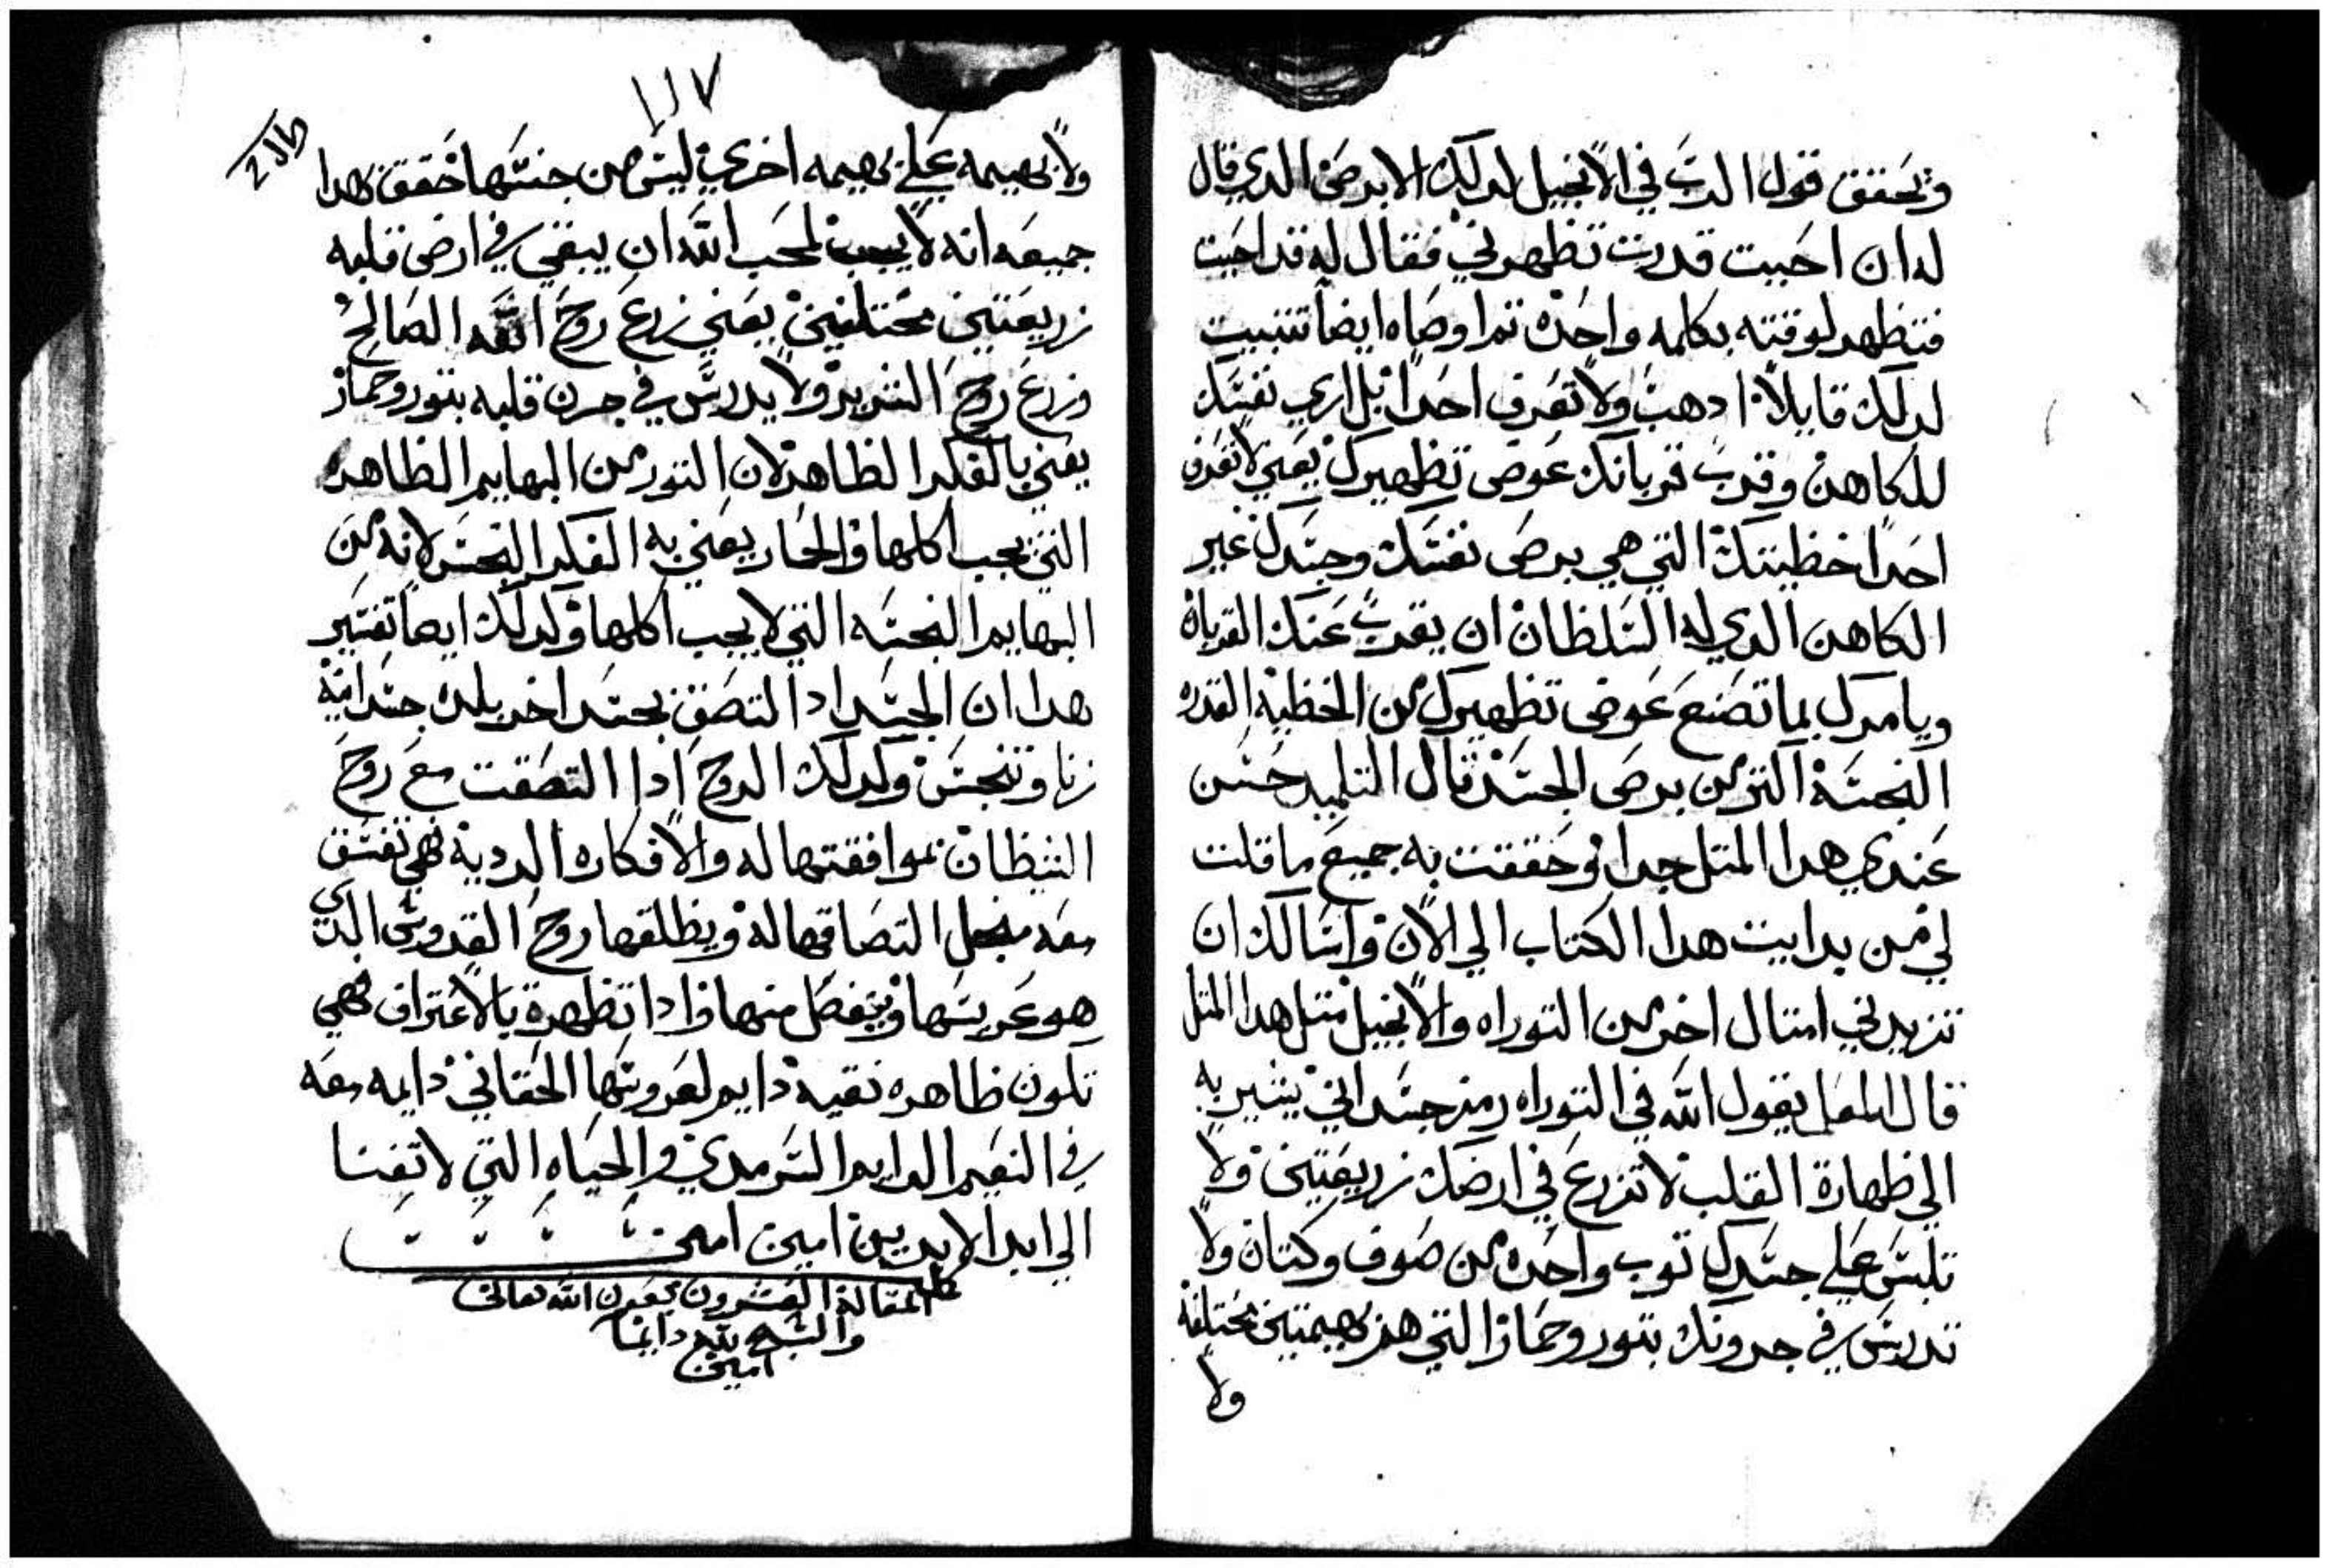 وتحقق قول الرب في الانجيل لدلك الابرص الدي قال
له ان احببت قدرت تطهرني فقال له قد احببت
فتطهر لوقته بكلمه واحده تم اوصاه ايضا تتبيت
لدلك قايلا ادهب ولا تعرف احدا بل اري نفسك
للكاهن وقرب قربانك عوض تطهيرك يعني لا تعرف
احدا خطيتك التي هي برص نفسك وجسدك غير
الكاهن الدي له السلطان ان يقرب عنك القربان
ويامرك بما تصنع عوض تطهيرك من الخطية القدره
النجسة اكتر من برص الجسد قال التلميد حسن
عندي هدا المتل جدا وحققت به جميع ما قلت
لي من بدايت هدا الكتاب الي الان واسالك ان
تزيدني امتال اخر من التوراه والانجيل متل هدا المتل
قال المعلم يقول الله في التوراه رمز جسداني يشير به
الي طهارة القلب لا تزرع في ارضك زريعتين ولا
تلبس علي جسدك توب واحد من صوف وكتان ولا
تدرس في جرونك بتور وحمار التي هم بهيمتين مختلفة
ولا
١١٧
ولا بهيمه علي بهيمه اخري ليس من جنسها حقق هدا
جميعه انه لا يجب لمحب الله ان يبقي في ارض قلبه
زريعتين مختلفين يعني زرع روح الله الصالح
وزرع روح الشرير ولا يدرس في جرن قلبه بتور وحمار
يعني بالفكر الطاهر لان التور من البهايم الطاهره
التي يجب اكلها والحمار يعني به الفكر النجس لانه من
البهايم النجسه التي لا يجب اكلها وكدلك ايضا تفسير
هدا ان الجسد ادا التصق بجسد اخر بلدة جسدانية
زنا وتنجس وكدلك الروح ادا التصقت مع روح
الشيطان بموافقتها له والافكاره الردية فهي تفسق
معه منجل التصاقها له ويطلقها روح القدوس الدي
هو عريسها وينفصل منها وادا تطهرة بالاعتراف فهي
تكون طاهره نقية دايم لعروسها الحقاني دايمه معه
في النعيم الدايم السرمدي والحياه التي لا تفنا
الي ابد الابدين امين امين
كمل المقالة العشرون بعون الله تعالي
والسبح لله دايما
امين